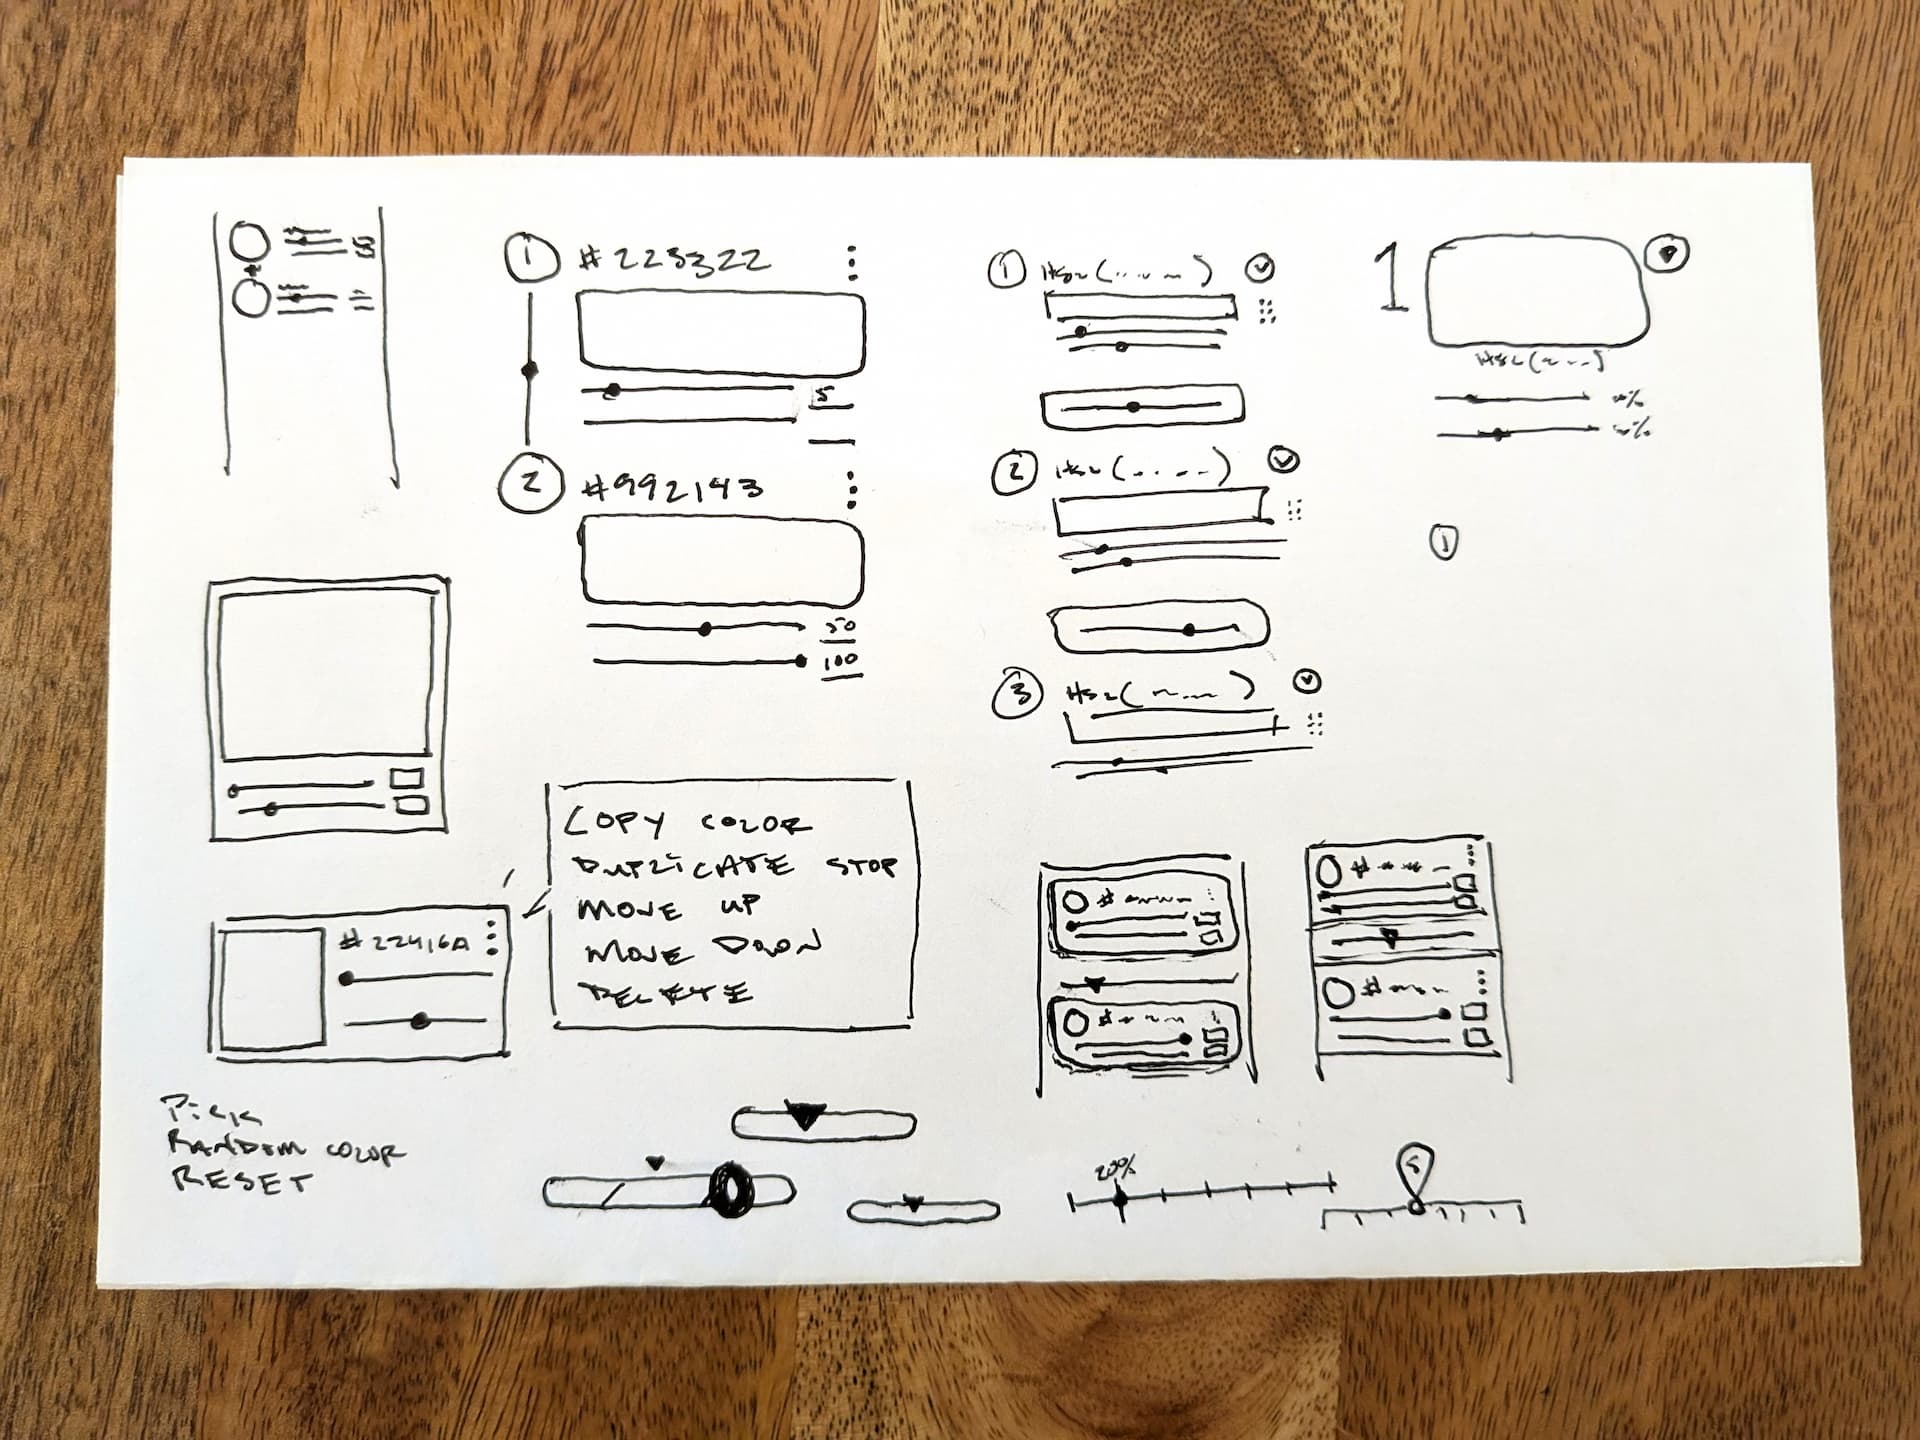 1
#223322
5
2
#992143
50
100
1
HSL(
2
HSL(
3
HSL(
1
HSL(
%
%
1
#22416A
COPY COLOR
DUPLICATE STOP
MOVE UP
MOVE DOWN
DELETE
PICK
RANDOM COLOR
RESET
#
#
#
#
20%
5